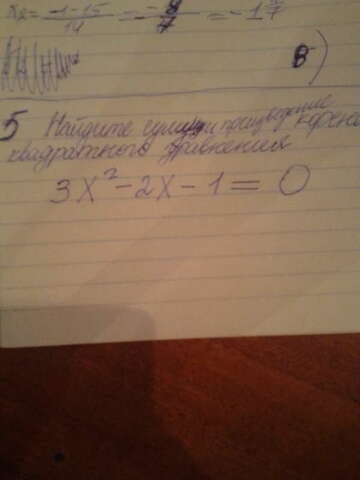 x₂ = -1-15/14 = -8/7 = -1 1/7
В)
5 Найдите сумму и произведение корней
квадратного уравнения
3x² - 2x - 1 = 0